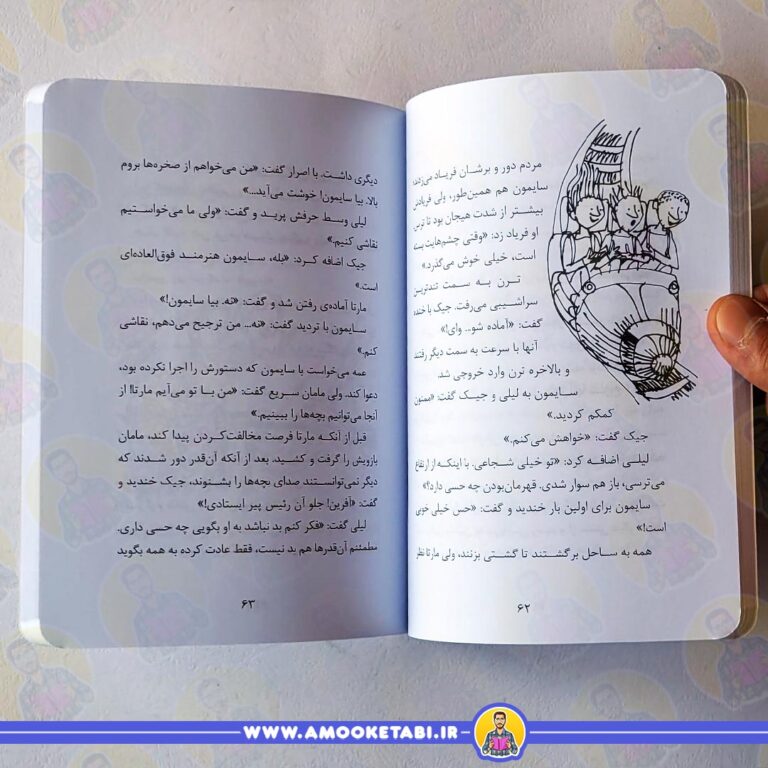 مردم دور و برشان فریاد می‌زدند،
سایمون هم همین‌طور، ولی فریادش
بیشتر از شدت هیجان بود تا ترس.
او فریاد زد: «وقتی چشم‌هایت بسته
است، خیلی خوش می‌گذرد.»
ترن به سمت تندترین
سراشیبی می‌رفت. جیک با خنده
گفت: «آماده شو... وای!»
آنها با سرعت به سمت دیگر رفتند
و بالاخره ترن وارد خروجی شد.
سایمون به لیلی و جیک گفت: «ممنون
کمکم کردید.»
جیک گفت: «خواهش می‌کنم.»
لیلی اضافه کرد: «تو خیلی شجاعی. با اینکه از ارتفاع
می‌ترسی، باز هم سوار شدی. قهرمان‌بودن چه حسی دارد؟»
سایمون برای اولین بار خندید و گفت: «حس خیلی خوبی
است!»
همه به ساحل برگشتند تا گشتی بزنند، ولی مارتا نظر
۶۲
دیگری داشت. با اصرار گفت: «من می‌خواهم از صخره‌ها بروم
بالا. بیا سایمون! خوشت می‌آید...»
لیلی وسط حرفش پرید و گفت: «ولی ما می‌خواستیم
نقاشی کنیم.»
جیک اضافه کرد: «بله، سایمون هنرمند فوق‌العاده‌ای
است.»
مارتا آماده‌ی رفتن شد و گفت: «نه. بیا سایمون!»
سایمون با تردید گفت: «نه... من ترجیح می‌دهم، نقاشی
کنم.»
عمه می‌خواست با سایمون که دستورش را اجرا نکرده بود،
دعوا کند. ولی مامان سریع گفت: «من با تو می‌آیم مارتا! از
آنجا می‌توانیم بچه‌ها را ببینیم.»
قبل از آنکه مارتا فرصت مخالفت‌کردن پیدا کند، مامان
بازویش را گرفت و کشید. بعد از آنکه آن‌قدر دور شدند که
دیگر نمی‌توانستند صدای بچه‌ها را بشنوند، جیک خندید و
گفت: «آفرین! جلو آن رئیس پیر ایستادی!»
لیلی گفت: «فکر کنم بد نباشد به او بگویی چه حسی داری.
مطمئنم آن‌قدرها هم بد نیست، فقط عادت کرده به همه بگوید
۶۳
WWW.AMOOKETABI.IR